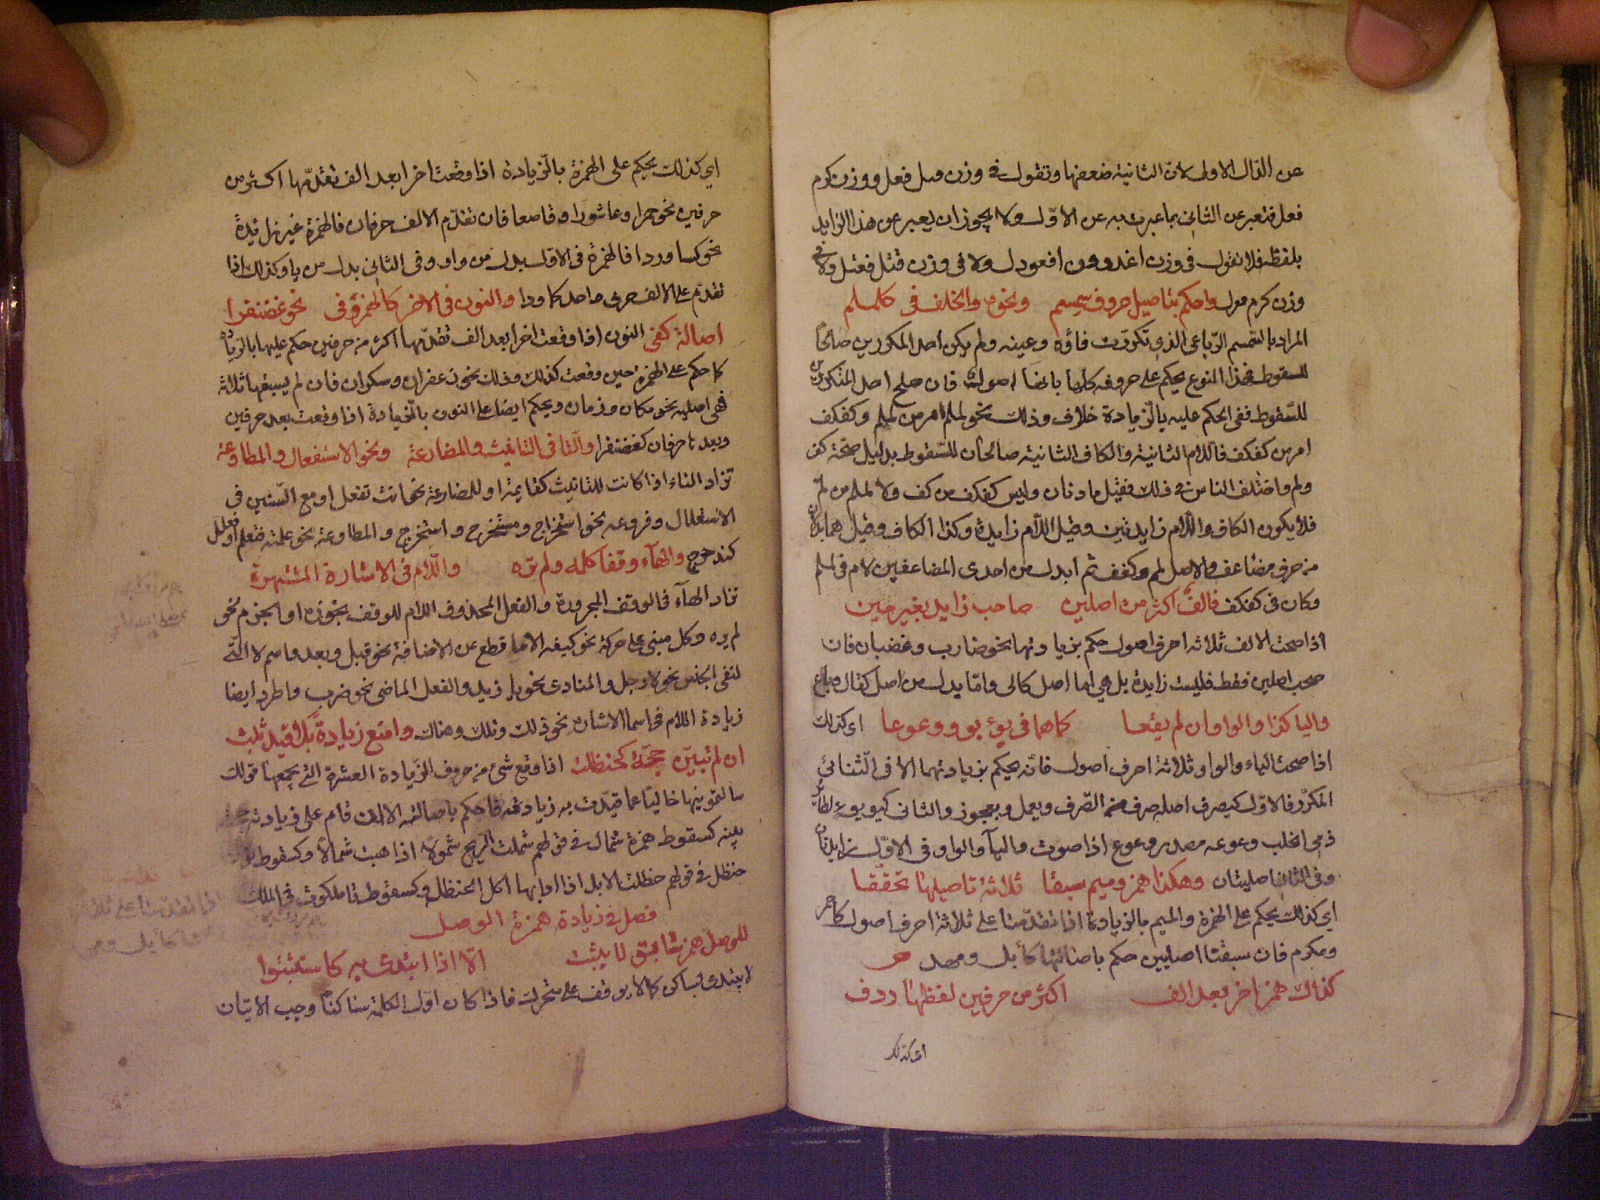 عن الدال الاولى لان الثانية ضعفها وتقول في وزن قبل فعل ووزن كرم
فعل فتعبر عن الثاني بما عبرت به عن الاول ولا يجوز ان يعبر عن هذا الزايد
بلفظه فلا تقول في وزن اغدودن افعودل ولا في وزن قتل فعتل ولا في
وزن كرم فعرل واحكم بتاصيل حروف سمسم ونحوه والخلف في كلملم
المراد بالسمسم الرباعي الذي تكررت فاؤه وعينه ولم يكن احد المكررين صالحا
للسقوط فهذا النوع يحكم على حروفه كلها بانها اصول فان صلح احد المكررين
للسقوط ففي الحكم عليه بالزيادة خلاف وذلك نحو لملم امر من لملم وكفكف
امر من كفكف فاللام الثانية والكاف الثانية صالحان للسقوط بدليل صحة كف
ولم واختلف الناس في ذلك فقيل مادتان وليس كفكف من كف ولا لملم من لم
فلا يكون الكاف واللام زايدتين وقيل اللام زايدة وكذا الكاف وقيل هما بدلان
من حرف مضاعف والاصل لمم وكفف ثم ابدل من احدى المضاعفين لام في لملم
وكاف في كفكف فالف اكثر من اصلين صاحب زايد بغير مين
اذا صحت الالف ثلاثة احرف اصول حكم بزيادتها نحو ضارب وغضبان فان
صحب اصلين فقط فليست زايدة بل هي اما اصل كالى واما بدل من اصل كقال وباع
واليا كذا والواو ان لم يقعا كما هما في يؤيؤ ووعوعا اي كذلك
اذا صحت الياء والواو ثلاثة احرف اصول فانه يحكم بزيادتهما الا في الثنائي
المكرر فالاول كصيرف اصله صرف من الصرف ويعمل وعجوز والثاني كيؤيؤ لطاير
ذي مخلب ووعوعة مصدر وعوع اذا صوت فاليا والواو في الاول زايدتان
وفي الثاني اصليتان وهكذا همز وميم سبقا ثلاثة تاصيلها تحققا
اي كذلك يحكم على الهمزة والميم بالزيادة اذا تقدمتا على ثلاثة احرف اصول كاحمر
ومكرم فان سبقتا اصلين حكم باصالتهما كابل ومهد
كذاك همز اخر بعد الف اكثر من حرفين لفظها ردف
اي كذلك
اي كذلك يحكم على الهمزة بالزيادة اذا وقعت اخرا بعد الف تقدمها اكثر من
حرفين نحو حمرا وعاشورا وقاصعا فان تقدم الالف حرفان فالهمزة غير زايدة
نحو كسا وردا فالهمزة في الاول بدل من واو وفي الثاني بدل من يا وكذلك اذا
تقدم على الالف حرف واحد كاء ودا والنون في الاخر كالهمز وفي نحو غضنفرا
اصالة كفي النون اذا وقعت اخرا بعد الف تقدمها اكثر من حرفين حكم عليها بالزيادة
كما حكم على الهمزة حين وقعت كذلك وذلك نحو زعفران وسكران فان لم يسبقها ثلاثة
فهي اصلية نحو مكان وزمان ويحكم ايضا على النون بالزيادة اذا وقعت بعد حرفين
وبعدها حرفان كغضنفر والتا في التانيث والمضارعة ونحو الاستفعال والمطاوعة
تزاد التاء اذا كانت للتانيث كقايمة او للمضارعة نحو انت تفعل او مع السين في
الاستفعال وفروعه نحو استخراج ومستخرج واستخرج والمطاوعة نحو علمته فتعلم او فعلل
كتدحرج والهاء وقفا كلمه ولم تره واللام في الاشارة المشتهرة
تزاد الهاء في الوقف المجرورة والفعل المحذوف اللام للوقف نحو ره او الجزم نحو
لم يره وكل مبني على حركة نحو كيفه الا ما قطع عن الاضافة نحو قبل وبعد واسم لا التي
لنفي الجنس نحو لا رجل والمنادى نحو يا زيد والفعل الماضي نحو ضرب واطرد ايضا
زيادة اللام في اسما الاشارة نحو ذلك وتلك وهناك وامنع زيادة بلا قيد ثبت
ان لم تبين حجة كحظلت اذا وقع شيء من حروف الزيادة العشرة التي يجمعها قولك
سالتمونيها خاليا عما قيدت به زيادته فاحكم باصالته الا ان قام على زيادته حجة
بينة كسقوط همزة شمال في قولهم شملت الريح شمولا اذا هبت شمالا وكسقوط نون
حنظل في قولهم حظلت الابل اذا اذاها اكل الحنظل وكسقوط تا ملكوت في الملك
فصل في زيادة همزة الوصل
للوصل همز سابق لا يثبت الا اذا ابتدى به كاستثبتوا
لا يبتدى بساكن كما لا يوقف على متحرك فاذا كان اول الكلمة ساكنا وجب الاتيان